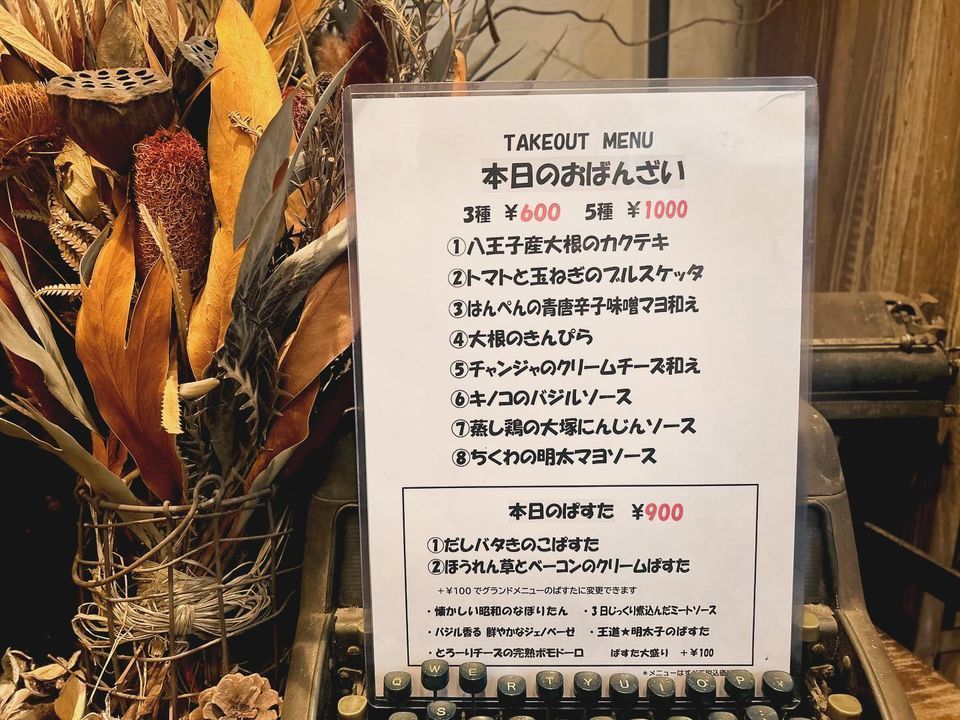 TAKEOUT MENU
本日のおばんざい
3種 ¥600 5種 ¥1000
①八王子産大根のカクテキ
②トマトと玉ねぎのブルスケッタ
③はんぺんの青唐辛子味噌マヨ和え
④大根のきんぴら
⑤チャンジャのクリームチーズ和え
⑥キノコのバジルソース
⑦蒸し鶏の大塚にんじんソース
⑧ちくわの明太マヨソース
本日のぱすた ¥900
①だしバタきのこぱすた
②ほうれん草とベーコンのクリームぱすた
+¥100でグランドメニューのぱすたに変更できます
・懐かしい昭和のなぽりたん ・3日じっくり煮込んだミートソース
・バジル香る 鮮やかなジェノベーゼ ・王道★明太子のぱすた
・とろーりチーズの完熟ポモドーロ ぱすた大盛り +¥100
*メニューはすべて税込価
W E
E R T Y U I O P
S